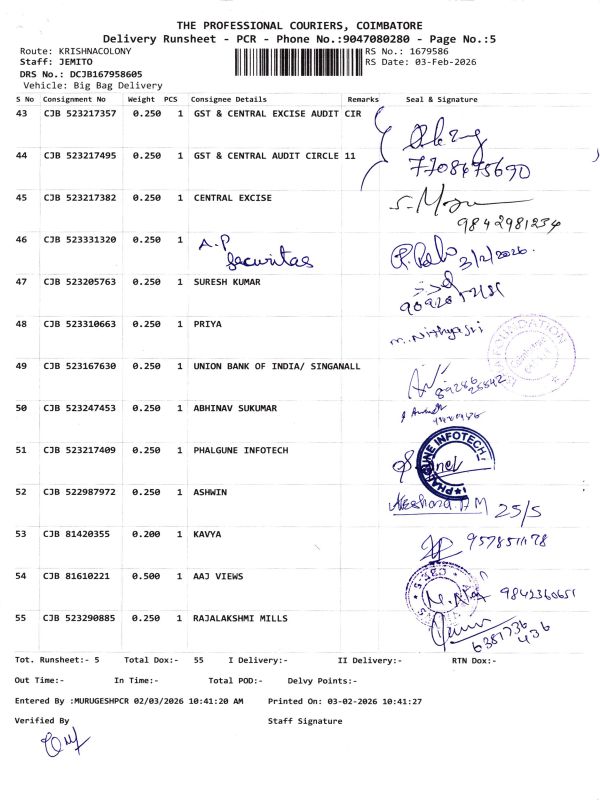 THE PROFESSIONAL COURIERS, COIMBATORE
Delivery Runsheet - PCR - Phone No.:9047080280 - Page No.:5
Route: KRISHNACOLONY RS No.: 1679586
Staff: JEMITO RS Date: 03-Feb-2026
DRS No.: DCJB167958605
Vehicle: Big Bag Delivery
S No Consignment No Weight PCS Consignee Details Remarks Seal & Signature
43 CJB 523217357 0.250 1 GST & CENTRAL EXCISE AUDIT CIR
44 CJB 523217495 0.250 1 GST & CENTRAL AUDIT CIRCLE 11 7708675690
45 CJB 523217382 0.250 1 CENTRAL EXCISE
9842981234
46 CJB 523331320 0.250 1 A.P Securitas 3/2/2026.
47 CJB 523205763 0.250 1 SURESH KUMAR
48 CJB 523310663 0.250 1 PRIYA M. Nithyasri
FOUNDATION
49 CJB 523167630 0.250 1 UNION BANK OF INDIA/ SINGANALL
50 CJB 523247453 0.250 1 ABHINAV SUKUMAR
51 CJB 523217409 0.250 1 PHALGUNE INFOTECH PHALGUNE INFOTECH
52 CJB 522987972 0.250 1 ASHWIN 25/5
53 CJB 81420355 0.200 1 KAVYA
54 CJB 81610221 0.500 1 AAJ VIEWS 9842360651
55 CJB 523290885 0.250 1 RAJALAKSHMI MILLS 6381736 436
Tot. Runsheet:- 5 Total Dox:- 55 I Delivery:- II Delivery:- RTN Dox:-
Out Time:- In Time:- Total POD:- Delvy Points:-
Entered By :MURUGESHPCR 02/03/2026 10:41:20 AM Printed On: 03-02-2026 10:41:27
Verified By Staff Signature